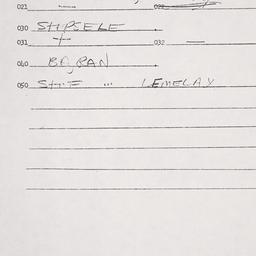 021 — 022
030 SHIPSELE
031 + 032 —
040 BAJRAN
050 SHE " LEMELAY